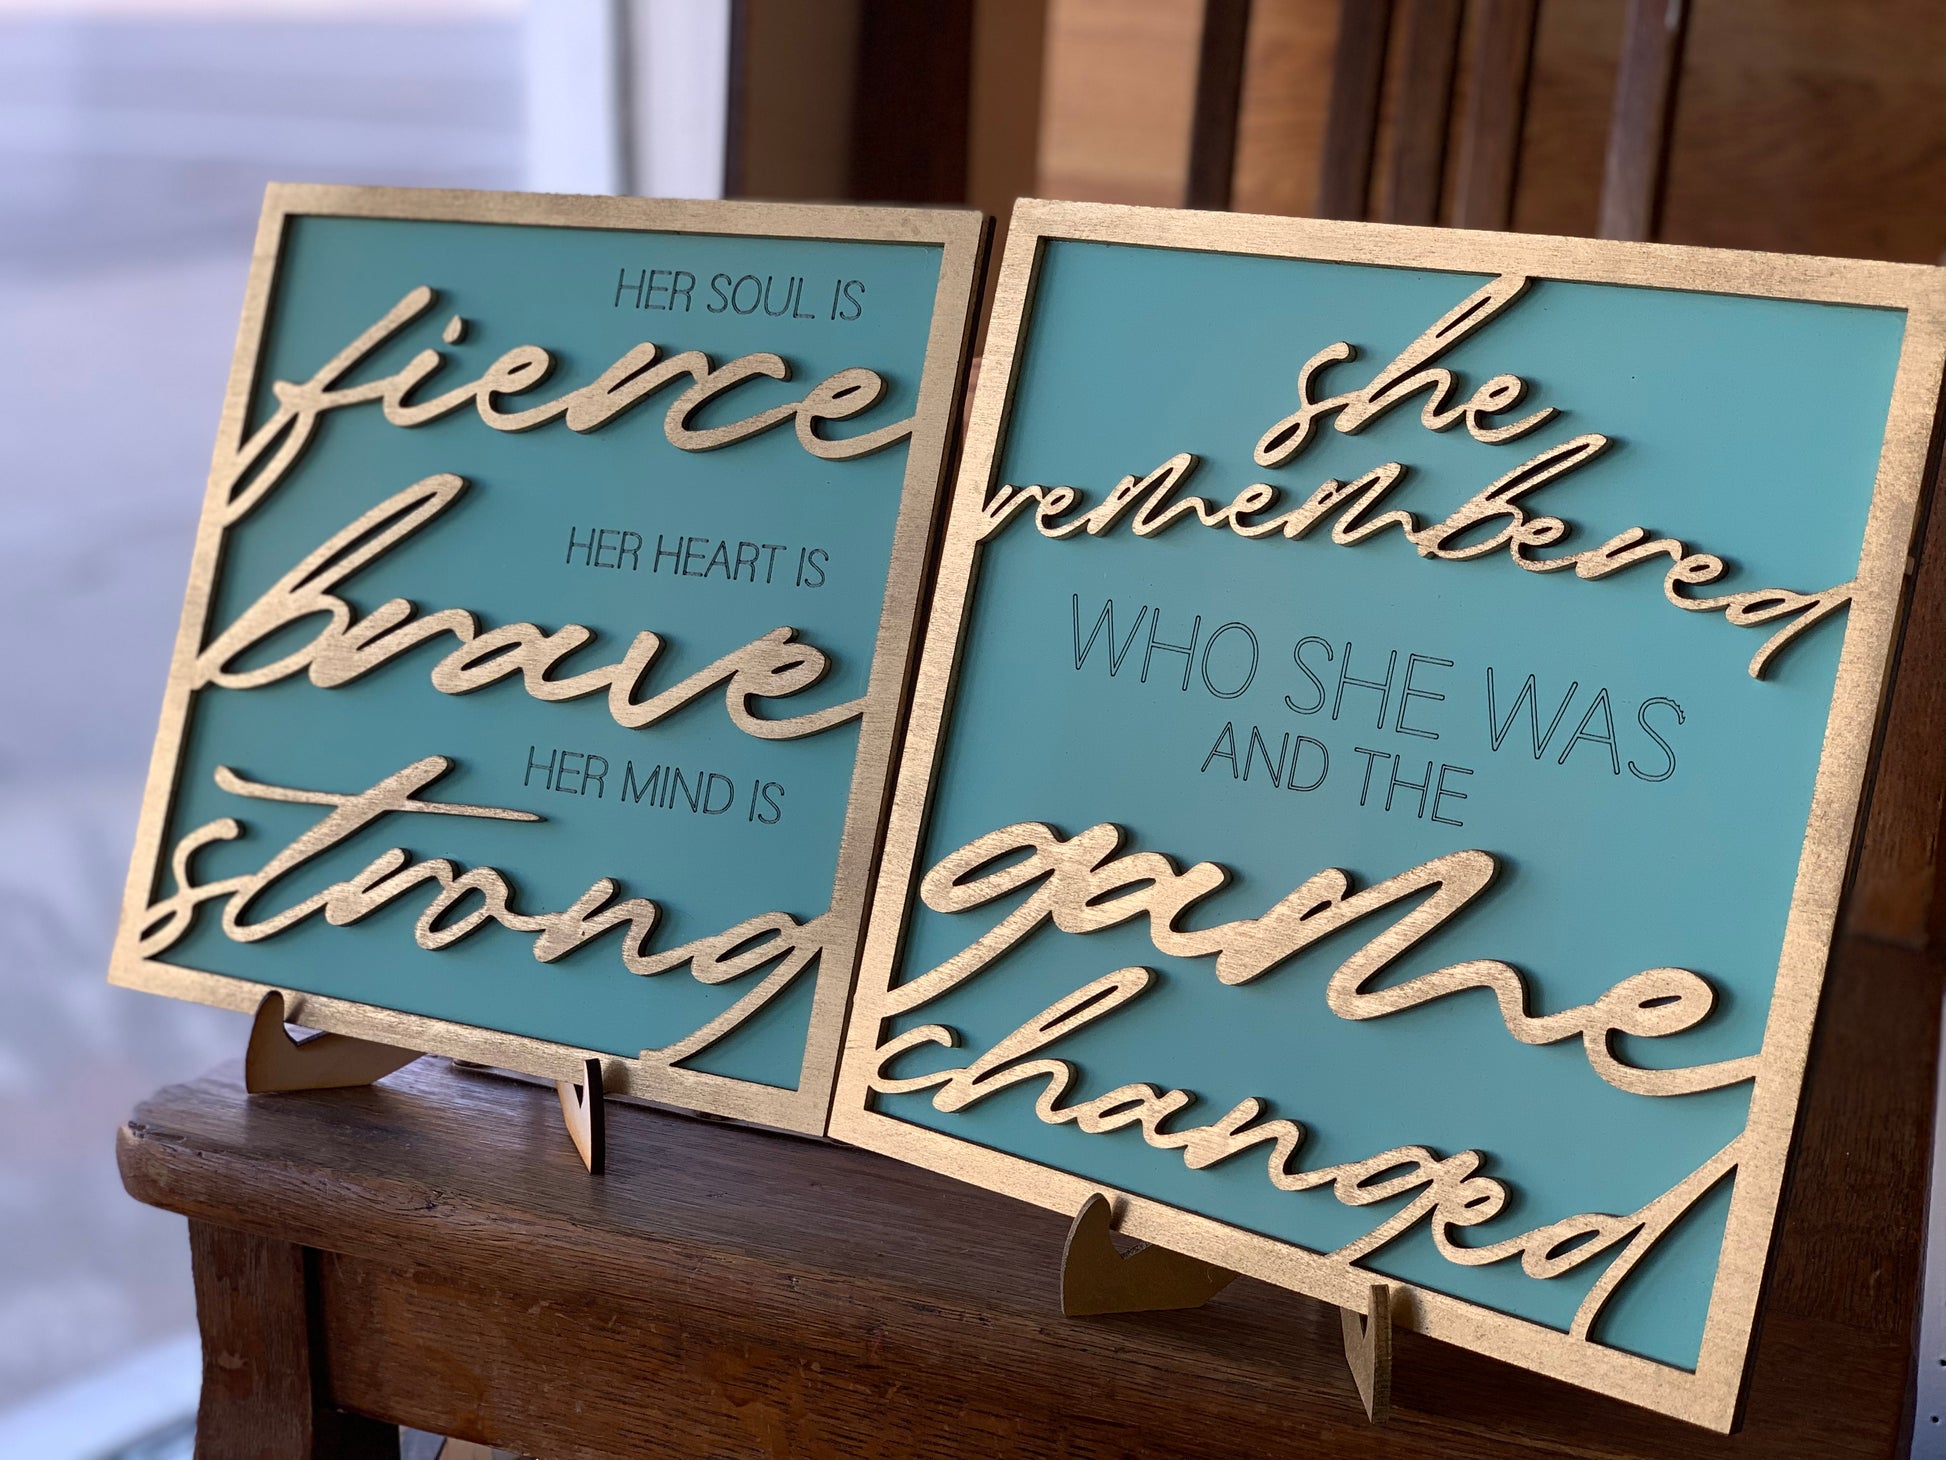 HER SOUL IS
fierce
HER HEART IS
brave
HER MIND IS
strong
she
remembered
WHO SHE WAS
AND THE
game
changed